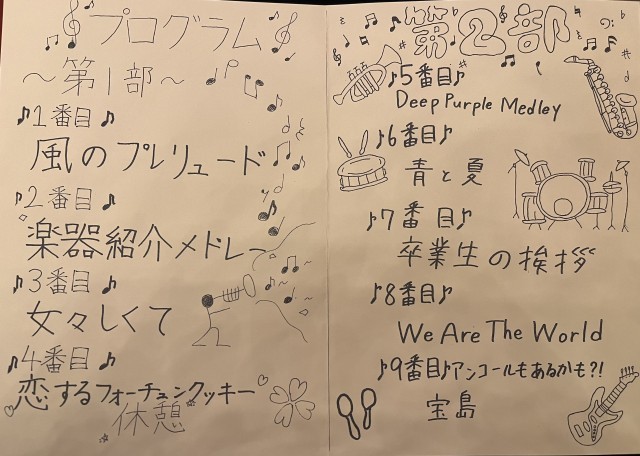 プログラム
～第1部～
♪1番目♪
風のプレリュード
♪2番目♪
楽器紹介メドレー
♪3番目♪
女々しくて
♪4番目♪
恋するフォーチュンクッキー
休憩
第2部
♪5番目♪
Deep Purple Medley
♪6番目♪
青と夏
♪7番目♪
卒業生の挨拶
♪8番目♪
We Are The World
♪9番目♪アンコールもあるかも?!
宝島